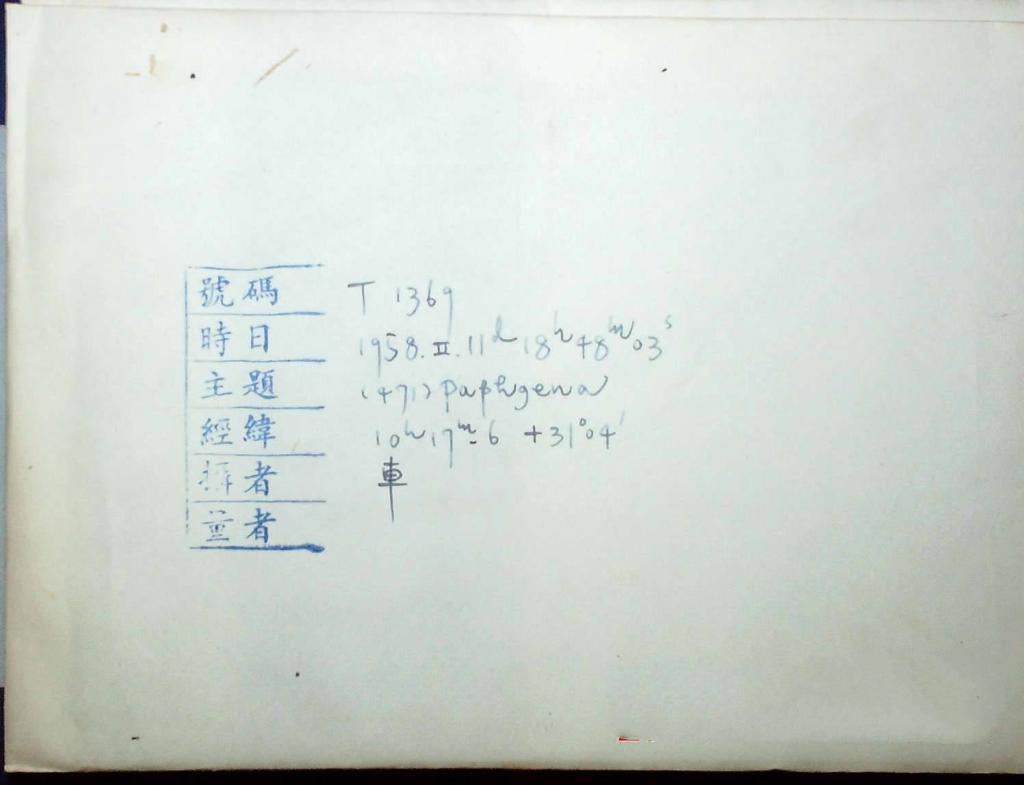 號碼 T 1369
時日 1958.II.11d 18h48m03s
主題 (471) Paphgena
經緯 10h17m.6 +31°04'
攝者 車
量者